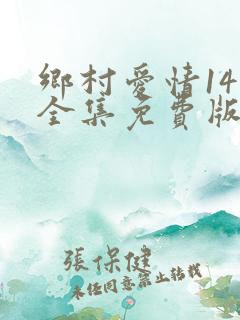 鄉村愛情14
全集免費版
張保健
未经同意禁止转载